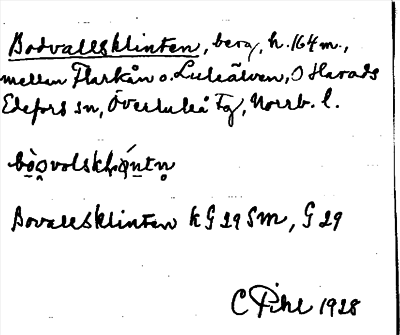 Bodvallsklinten, berg, h. 164 m.,
mellan Flarkån o. Luleälven, O Harads
Edefors sn, Överluleå Tg, Norrb. l.
Bovallsklinten kG 29 Sm, G 29
C Pihl 1928